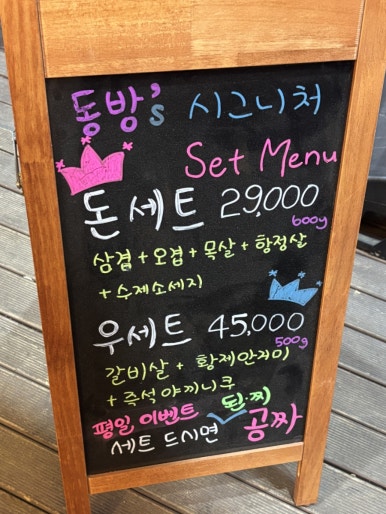 동방's 시그니처
Set Menu
돈세트 29,000
600g
삼겹 + 오겹 + 목살 + 항정살
+ 수제소세지
우세트 45,000
500g
갈비살 + 황제안저미
+ 즉석야끼니쿠
평일 이벤트 된.찌
세트 드시면 공짜